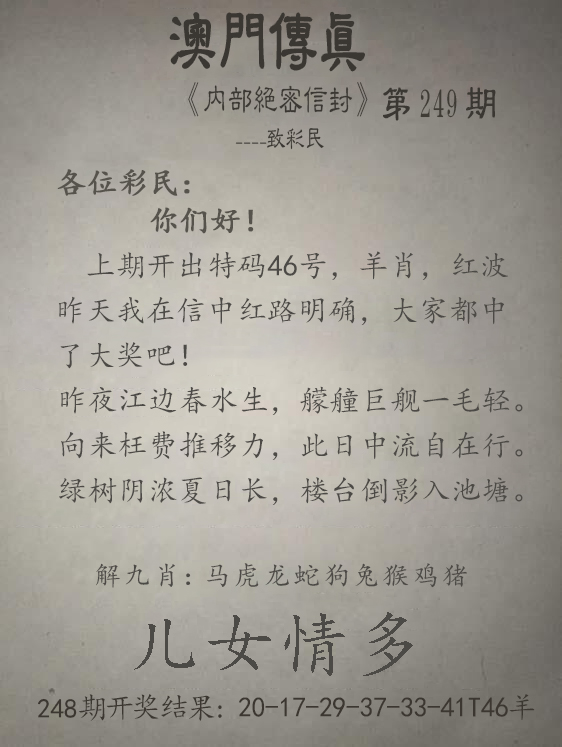 澳門傳眞
《内部絕密信封》第249期
----致彩民
各位彩民：
你们好！
上期开出特码46号，羊肖，红波
昨天我在信中红路明确，大家都中
了大奖吧！
昨夜江边春水生，艨艟巨舰一毛轻。
向来枉费推移力，此日中流自在行。
绿树阴浓夏日长，楼台倒影入池塘。
解九肖：马虎龙蛇狗兔猴鸡猪
儿女情多
248期开奖结果：20-17-29-37-33-41T46羊